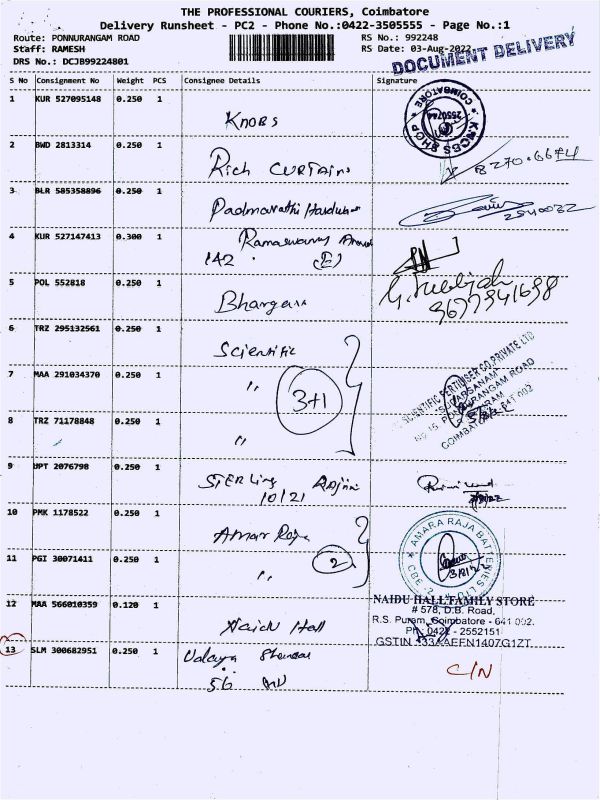 THE PROFESSIONAL COURIERS, Coimbatore
Delivery Runsheet - PC2 - Phone No.:0422-3505555 - Page No.:1
Route: PONNURANGAM ROAD
Staff: RAMESH
DRS No.: DCJB99224801
RS No.: 992248
RS Date: 03-Aug-2022
DOCUMENT DELIVERY
S No Consignment No Weight PCS Consignee Details Signature
1 KUR 527095148 0.250 1 KNOBS
COIMBATORE KNOBS SHOP
2 BWD 2813314 0.250 1 RICH CURTAINS
3 BLR 585358896 0.250 1
4 KUR 527147413 0.300 1 Ramaswamy
142 (E)
5 POL 552818 0.250 1
6 TRZ 295132561 0.250 1 Scientific
7 MAA 291034370 0.250 1 " 3+1
SCIENTIFIC FERTILISER CO. PRIVATE LTD
8 TRZ 71178848 0.250 1 "
9 UPT 2076798 0.250 1 STERLING
10/21
10 PMK 1178522 0.250 1 Amar Raja
11 PGI 30071411 0.250 1 " 2
AMARA RAJA BATTERIES LTD
12 MAA 566010359 0.120 1 Naidu Hall
NAIDU HALL FAMILY STORE
# 578, D.B. Road,
R.S. Puram, Coimbatore - 641 002.
Ph: 0422 - 2552151
13 SLM 300682951 0.250 1
56
C/N